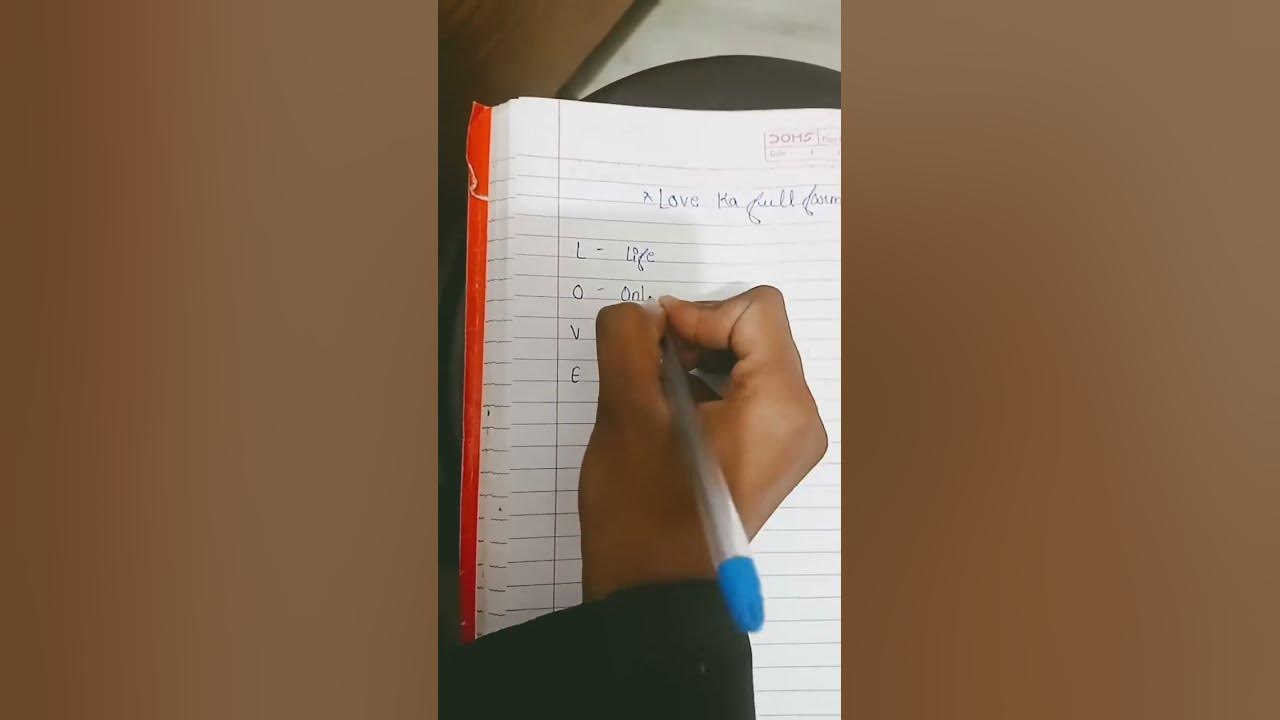 DOMS
Date
* Love Ka full form
L - Life
O - Onl
V
E